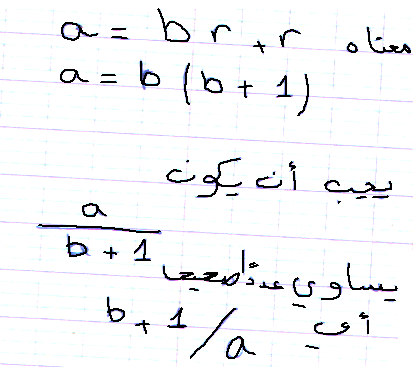 معناه a = br + r
a = b (b + 1)
يجب أن يكون
a / b + 1
يساوي عددًا صحيحا
أي b + 1 / a